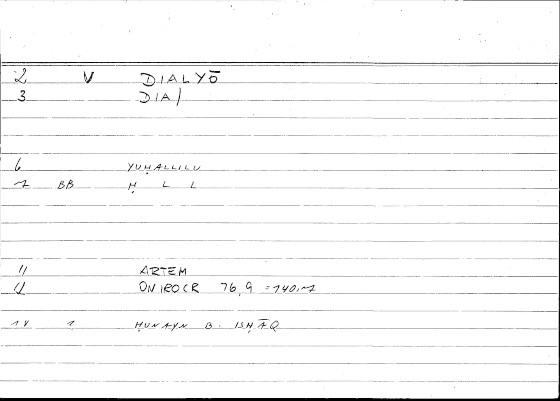 2 V DIALYŌ
3 DIA/
6 YUḤALLILU
7 BB Ḥ L L
11 ARTEM
12 ONIROCR 76,9 = 140,17
14 1 ḤUNAYN B. ISḤĀQ